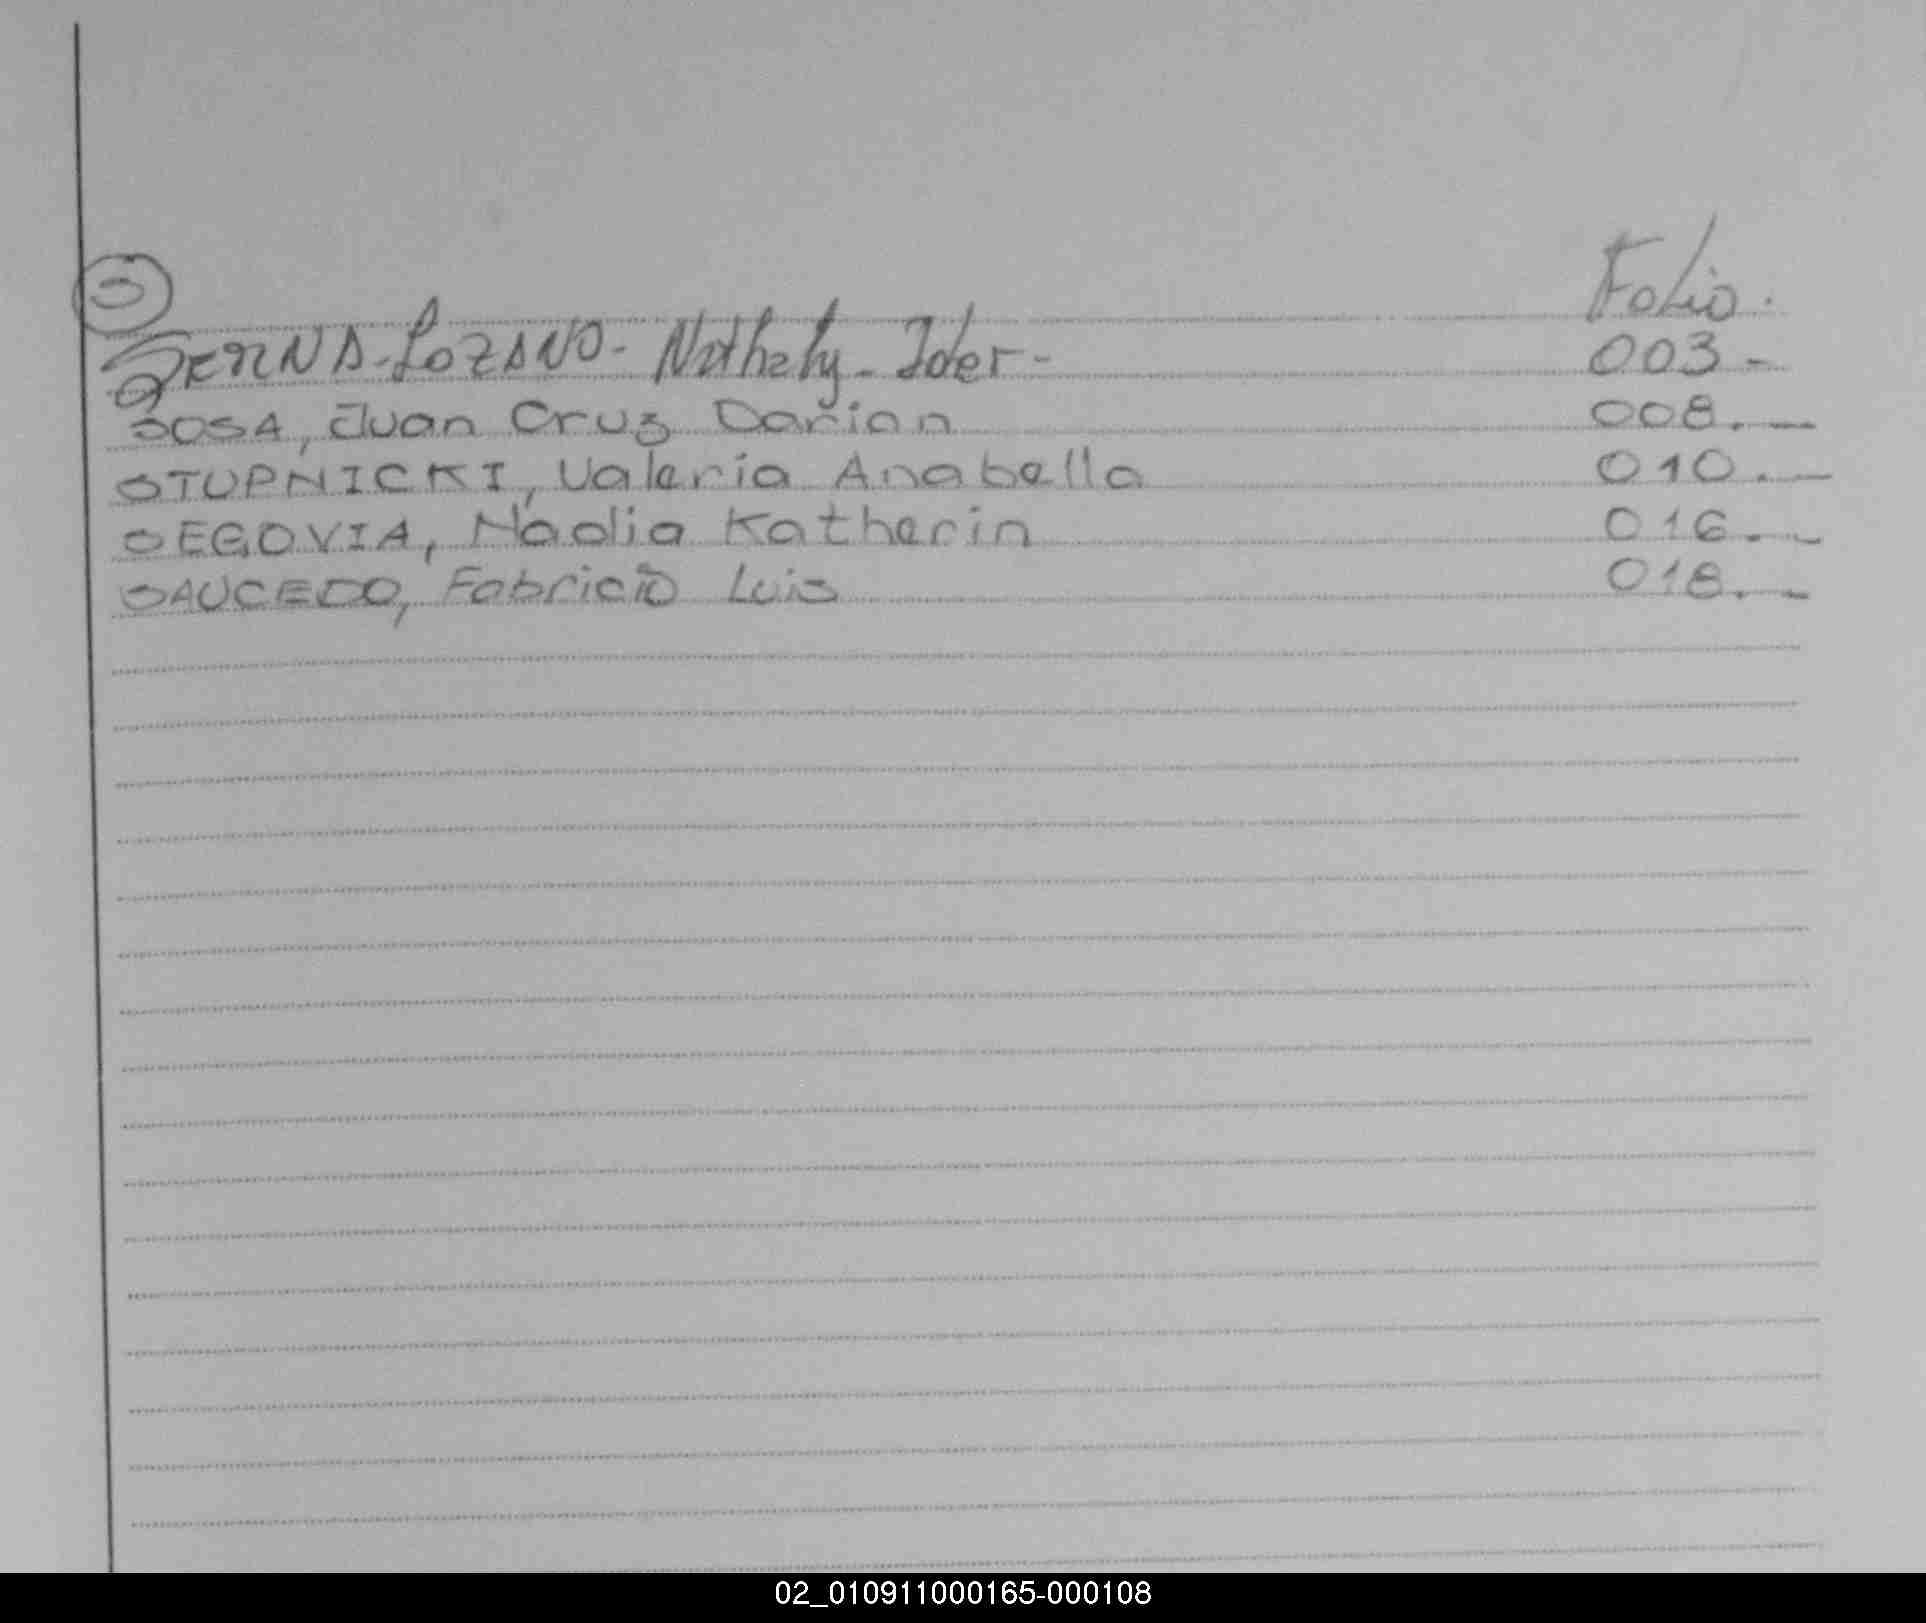 S
Folio.
SERNA-LOZANO- Nathaly- Ider- 003-
SOSA, Juan Cruz Darian 008.-
STUPNICKI, Valeria Anabella 010.-
SEGOVIA, Nadia Katherin 016.-
SAUCEDO, Fabricio Luis 018.-
02_010911000165-000108